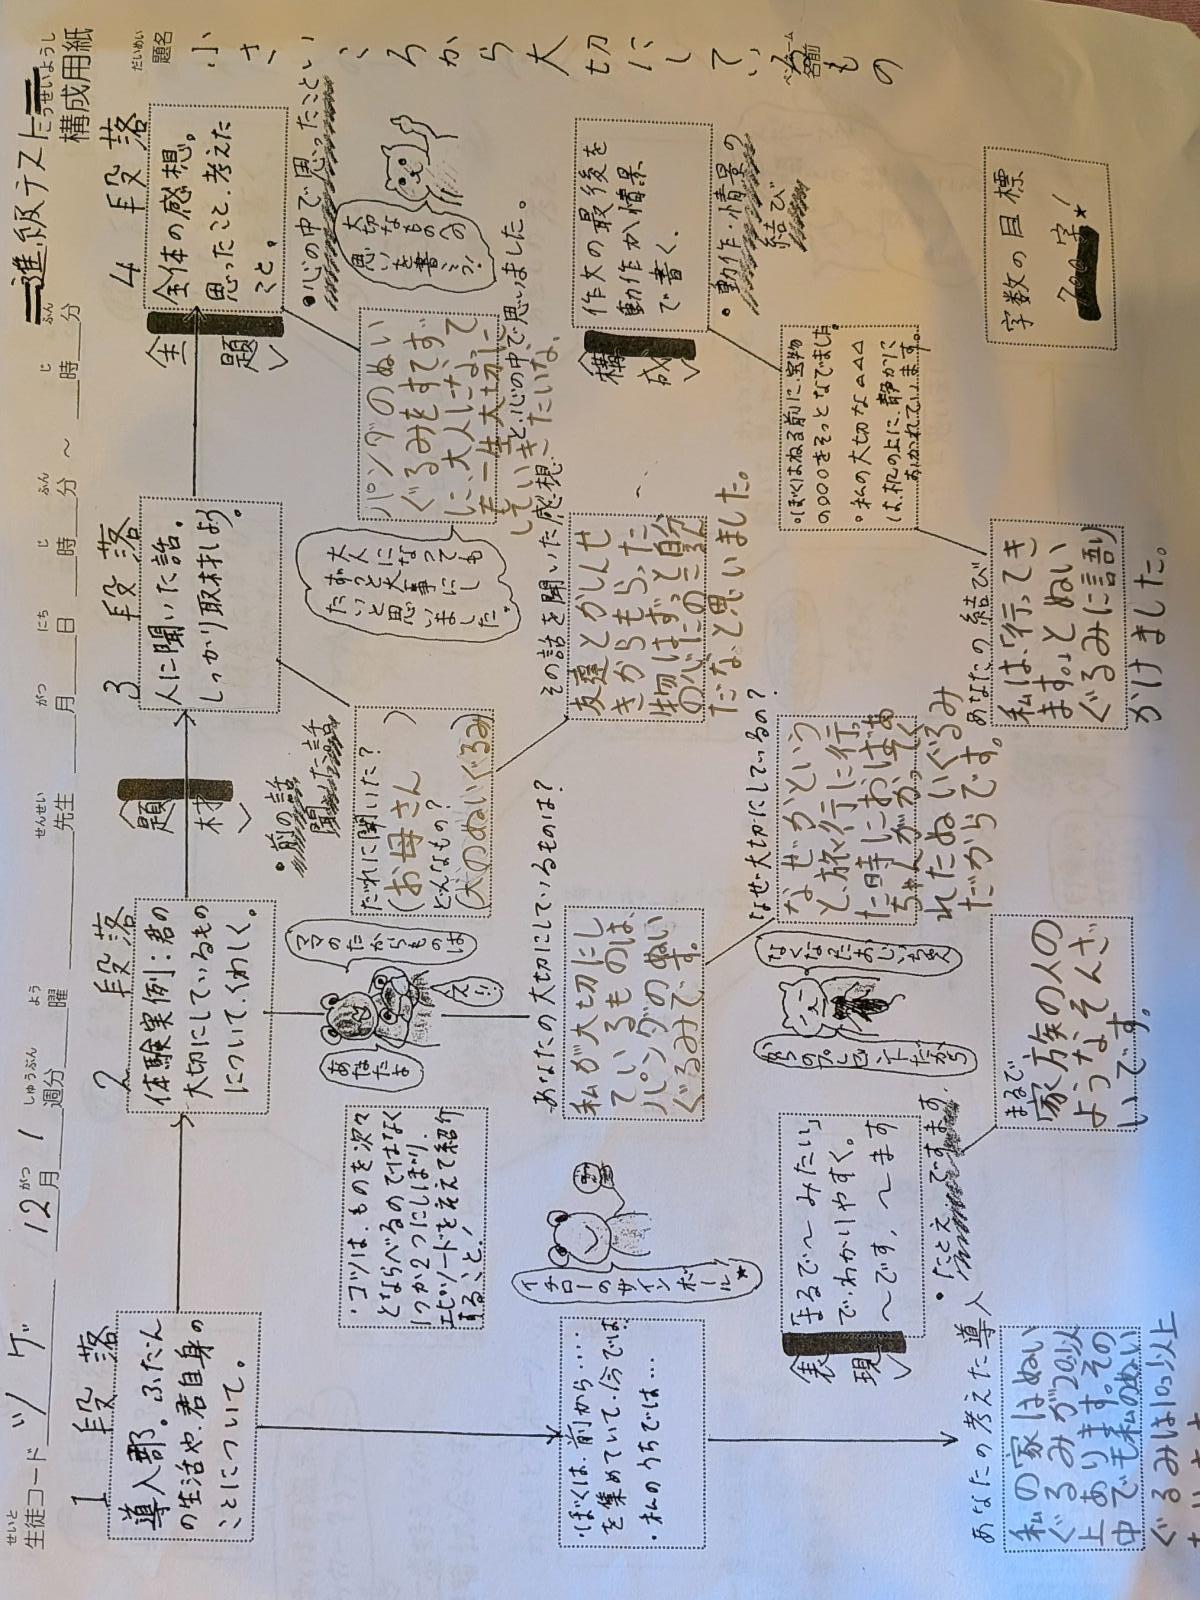 進級テスト
構成用紙
こうせいようし
せいと
生徒コード ツゲ
12月1週分
がつ しゅうぶん
曜
よう
先生
せんせい
月 日 時 分 ～ 時 分
がつ にち じ ふん じ ふん
題名
だいめい
小さいころから大切にしているもの
1段落
導入部。ふだん
の生活や、君自身の
ことについて。
・ぼくは、前から……
を集めていて、今では、
・私のうちでは…
あなたの考えた導入
私の家はぬい
ぐるみが20以
上あります。その
中でも私のぬい
ぐるみは10こ以上
2段落
体験実例：君の
大切にしているもの
について、くわしく。
・コツは、ものを次々
とならべるのではなく
1つか2つにしぼり、
エピソードを交えて紹介
すること！
イチローの
サイン
ボール★
ママのたからものは
あなたよ
えっ!!
あなたの大切にしているものは？
私が大切にし
ているものは、
パンダのぬい
ぐるみです。
なぜ大切にしているの？
なぜかという
と、旅行に行っ
た時におばあ
ちゃんがかってく
れたぬいぐるみ
だからです。
〈表現〉
「まるで～みたい」
で、わかりやすく。
～です、～ます
・たとえ
ですます
なくなったおじいちゃん
からのプレゼントだから
まるで
家族の人の
ようなそんざ
いです。
〈題材〉
3段落
人に聞いた話。
しっかり取材しよう。
・前の話
聞いた話
だれに聞いた？
（お母さん）
どんなもの？
（犬のぬいぐるみ）
大人に
なっても
ずっと
大事にし
たいと思い
ました。
その話を聞いた感想
友達とかしんせ
きからもらった
物はずっと自分
の心にのこるん
だな、と思いました。
〈主題〉
4段落
全体の感想。
思ったこと、考えた
こと。
・心の中で思ったこと
大切なものへの
思いを書こう！
パンダのぬい
ぐるみをすてず
に、大人になって
も一生大切に
していきたいな、
と、心の中で思いました。
〈構成〉
作文の最後を
動作か情景
で書く。
・動作・情景の
結び
・ぼくはねる前に、宝物
の○○○をそっとなでました。
・私の大切な△△△
は、机の上に、静かに
おかれています。
あなたの結び
私は、「行ってき
ます。」とぬい
ぐるみに語り
かけました。
字数の目標
700字！